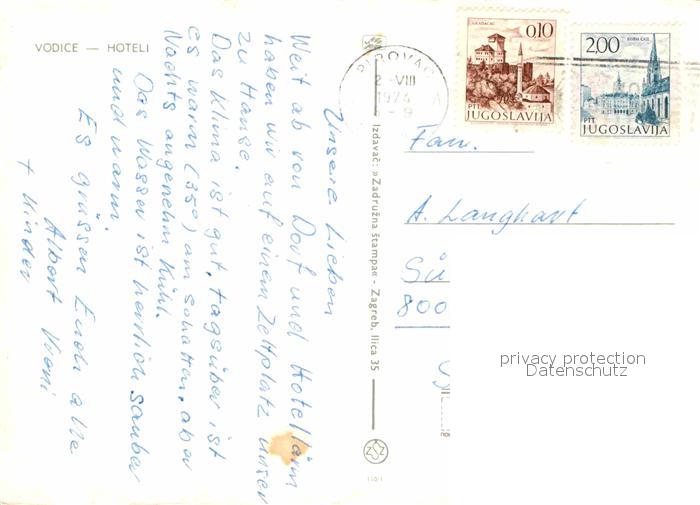 VODICE — HOTELI
Unsere Lieben
Weit ab von Dorf und Hotellärm
haben wir auf einem Zeltplatz unser
zu Hause.
Das Klima ist gut, tagsüber ist
es warm (35°) am schatten, aber
Nachts angenehm Kühl.
Das Wasser ist herrlich sauber
und warm.
Es grüssen Euch alle
Albert Vroni
+ Kinder
Izdavač: »Zadružna štampa« - Zagreb, Ilica 35
PIROVAC
2-VIII
1974
-9
A
GRADAČAC
0,10
PTT
JUGOSLAVIJA
2,00
PTT
JUGOSLAVIJA
Fam.
A. Langhart
800
privacy protection
Datenschutz